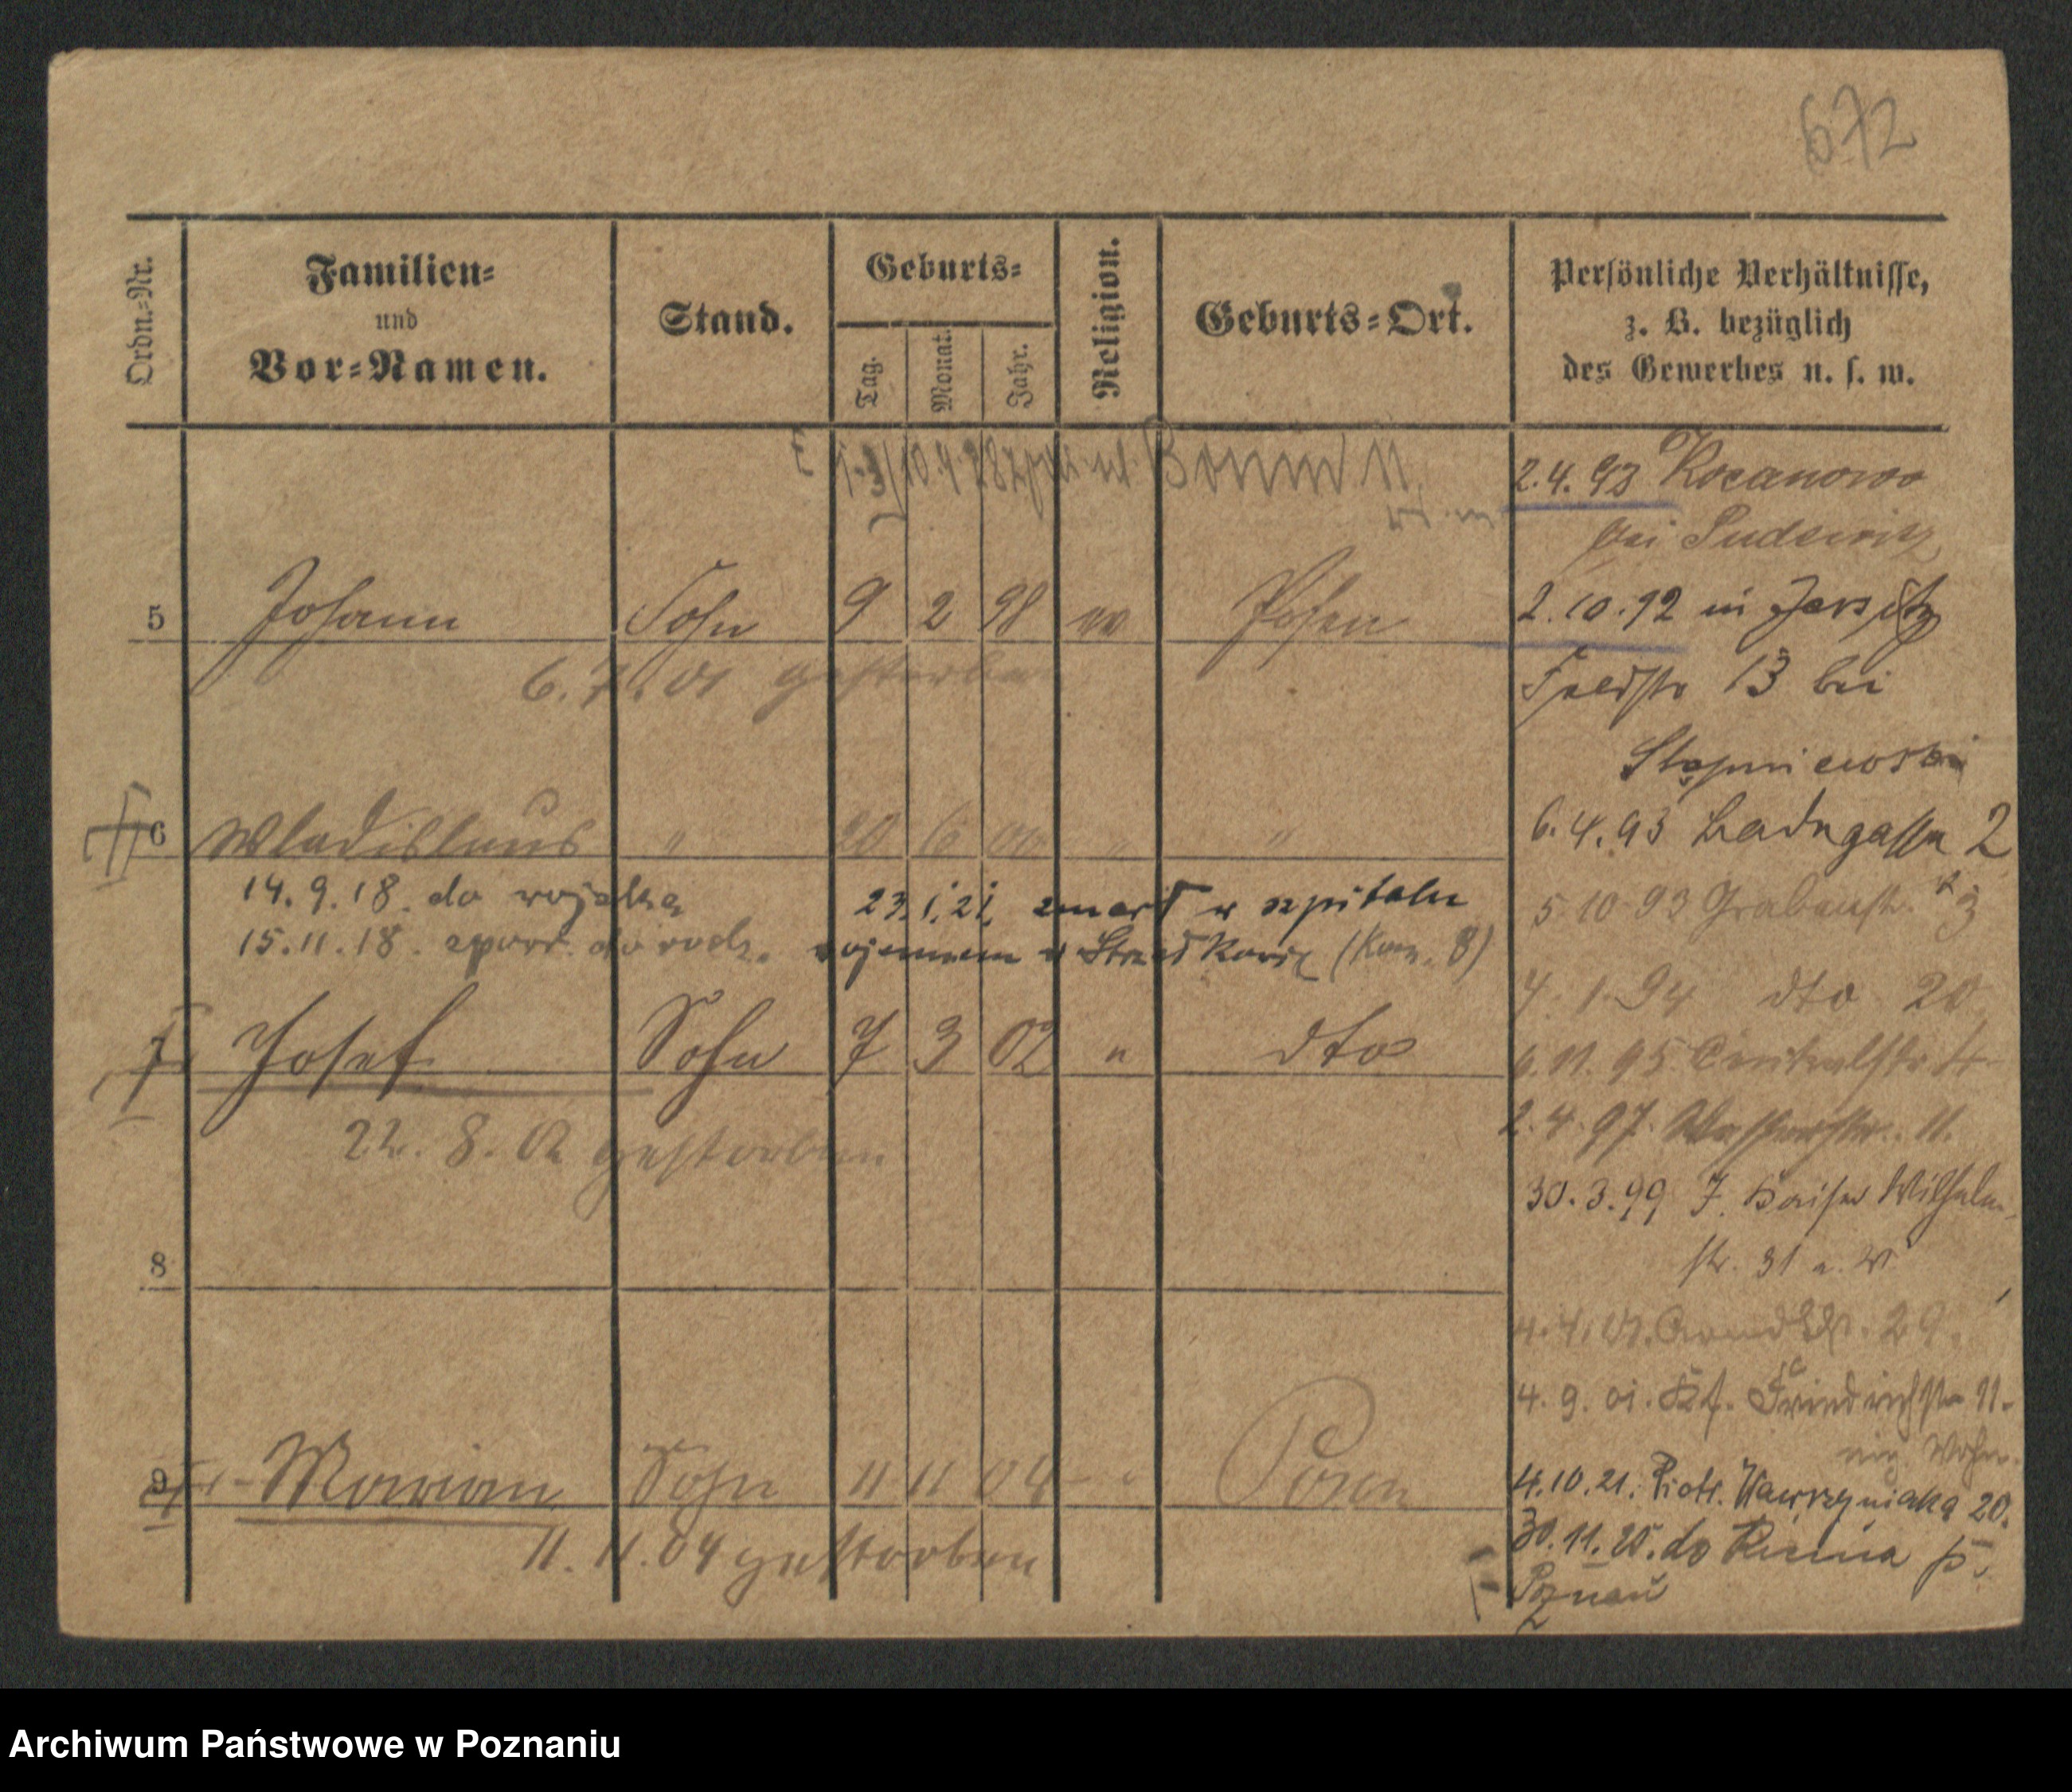 672
Ordn.-Nr.
Familien-
und
Vor-Namen.
Stand.
Geburts-
Tag.
Monat.
Jahr.
Religion.
Geburts-Ort.
Persönliche Verhältnisse,
z. B. bezüglich
des Gewerbes u. s. w.
2.4.93 Kocanowo
bei Pudewitz
5 Johann Sohn 9 2 98 Posen
6.7.01 gestorben
2.10.92 in Jersitz
Feldstr 13 bei
Stępniewski
6 Wladislaus " 20 6 00 " "
14.9.18. do wojska
15.11.18. do rodz.
23.1.21. zmarł w szpitalu
wojennem w Strzałkowie (Kom. 8)
6.4.93 Badegasse 2
5 10 93 Grabenstr. 3
4.1.94 dto 20
7 Josef Sohn 7 3 02 " dto
22.8.02 gestorben
6.11.95 Centralstr.
2.4.97 11.
30.3.99 J. Kaiser Wilhelm-
str. 31
8
29.
4.9.01. Friedrichstr 11.
9 Marian Sohn 11 11 04 Posen
11.11.04 gestorben
4.10.21. Piotr. Wawrzyniaka 20.
30.11.25. do p.
Poznań
Archiwum Państwowe w Poznaniu